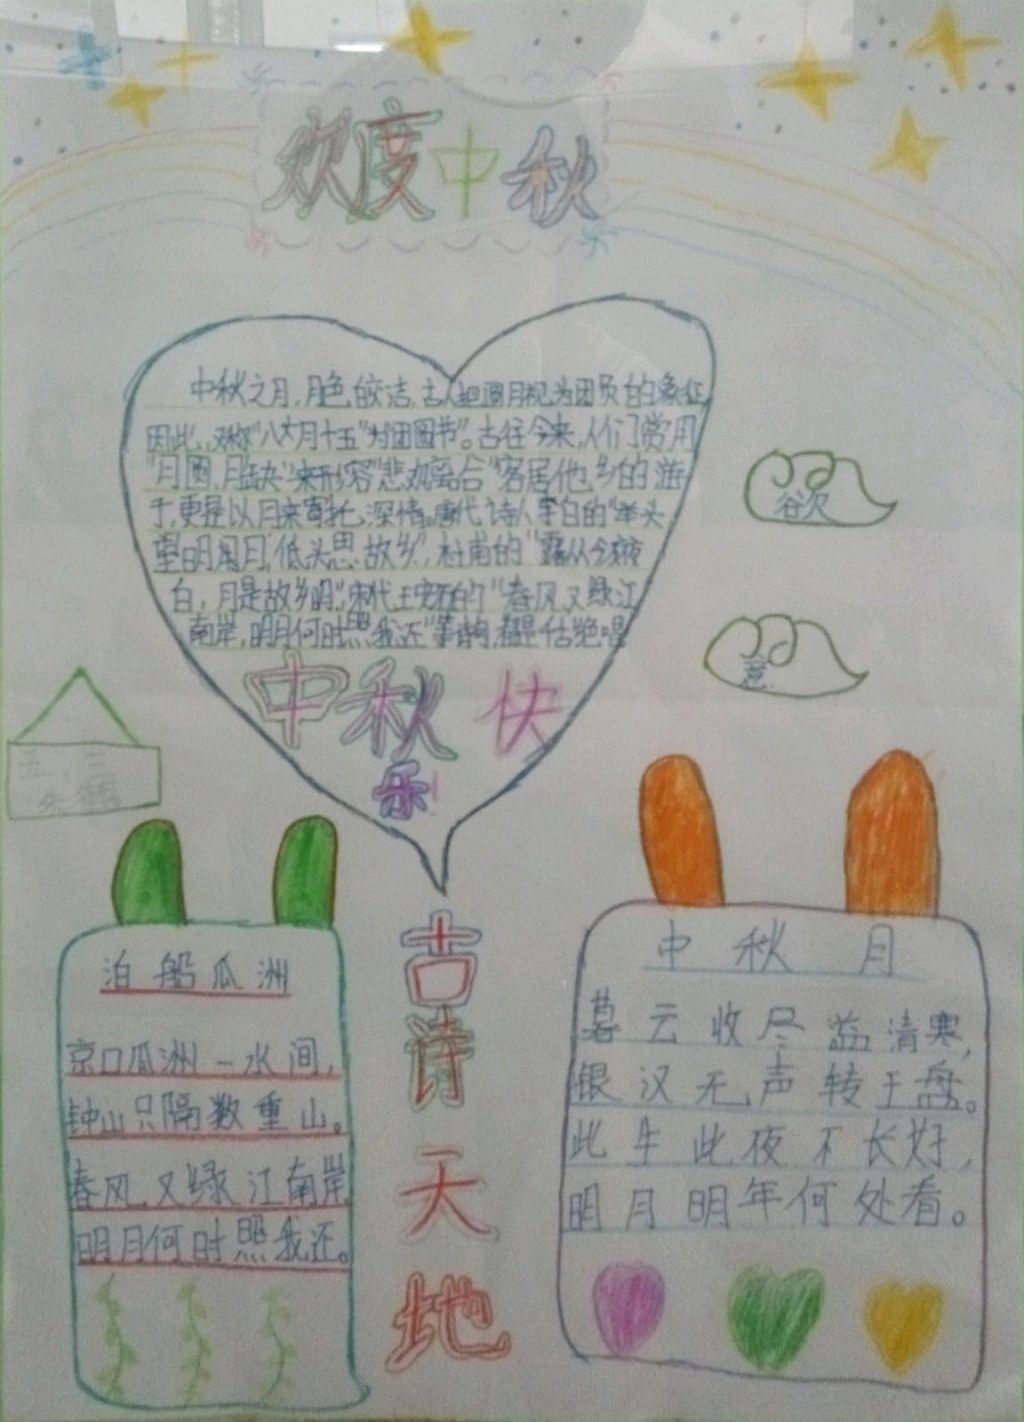 欢度中秋
中秋之月,月色皎洁,古人把圆月视为团员的象征,
因此,又称“八月十五”为团圆节”。古往今来,人们常用
“月圆、月缺”来形容“悲欢离合”客居他乡的游
子,更是以月来寄托深情。唐代诗人李白的“举头
望明月,低头思故乡”,杜甫的“露从今夜
白,月是故乡明”,宋代王安石的“春风又绿江
南岸,明月何时照我还”等诗句,都是千古绝唱
中秋快
乐!
五、三
古诗天地
泊船瓜洲
京口瓜洲一水间,
钟山只隔数重山。
春风又绿江南岸
明月何时照我还。
中秋月
暮云收尽益清寒,
银汉无声转玉盘。
此生此夜不长好,
明月明年何处看。